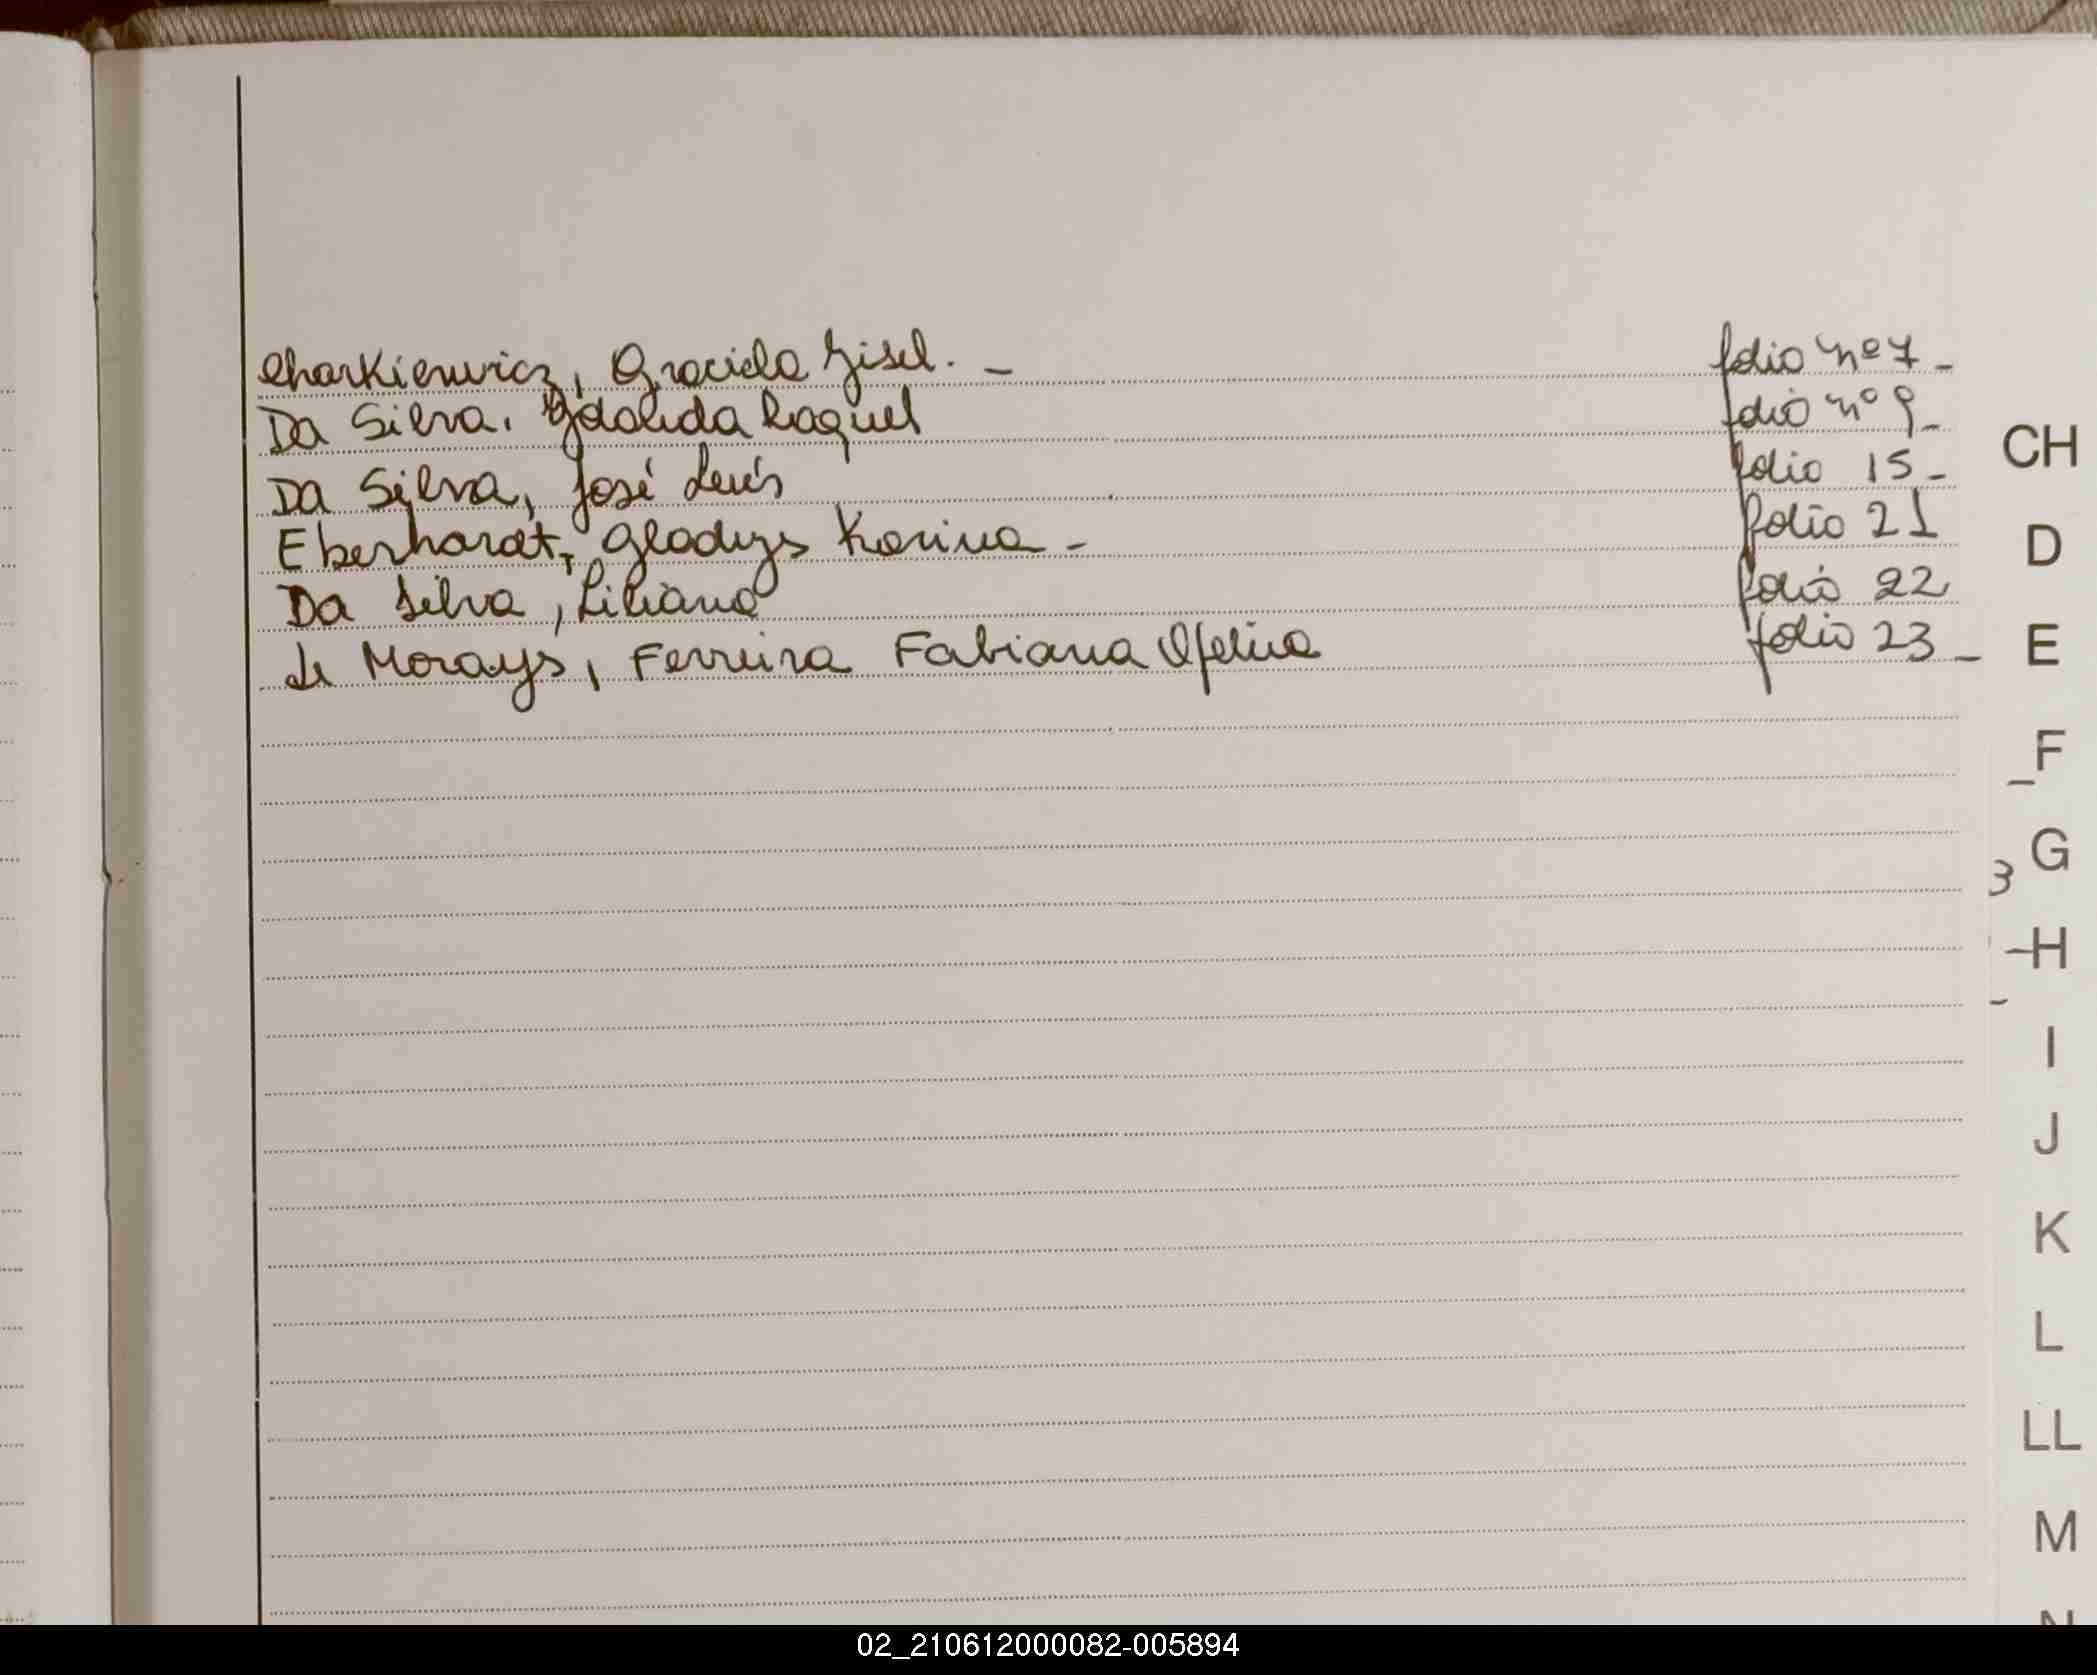 Charkiewicz, Graciela Gisel. - folio nº 7 -
Da Silva, Idalida Raquel folio nº 9 -
Da Silva, José Luís folio 15 -
Eberhardt, Gladys Karina - folio 21
Da Silva, Liliana folio 22
de Morays, Ferreira Fabiana Ofelia folio 23 -
CH
D
E
F
G
3
H
I
J
K
L
LL
M
N
02_210612000082-005894